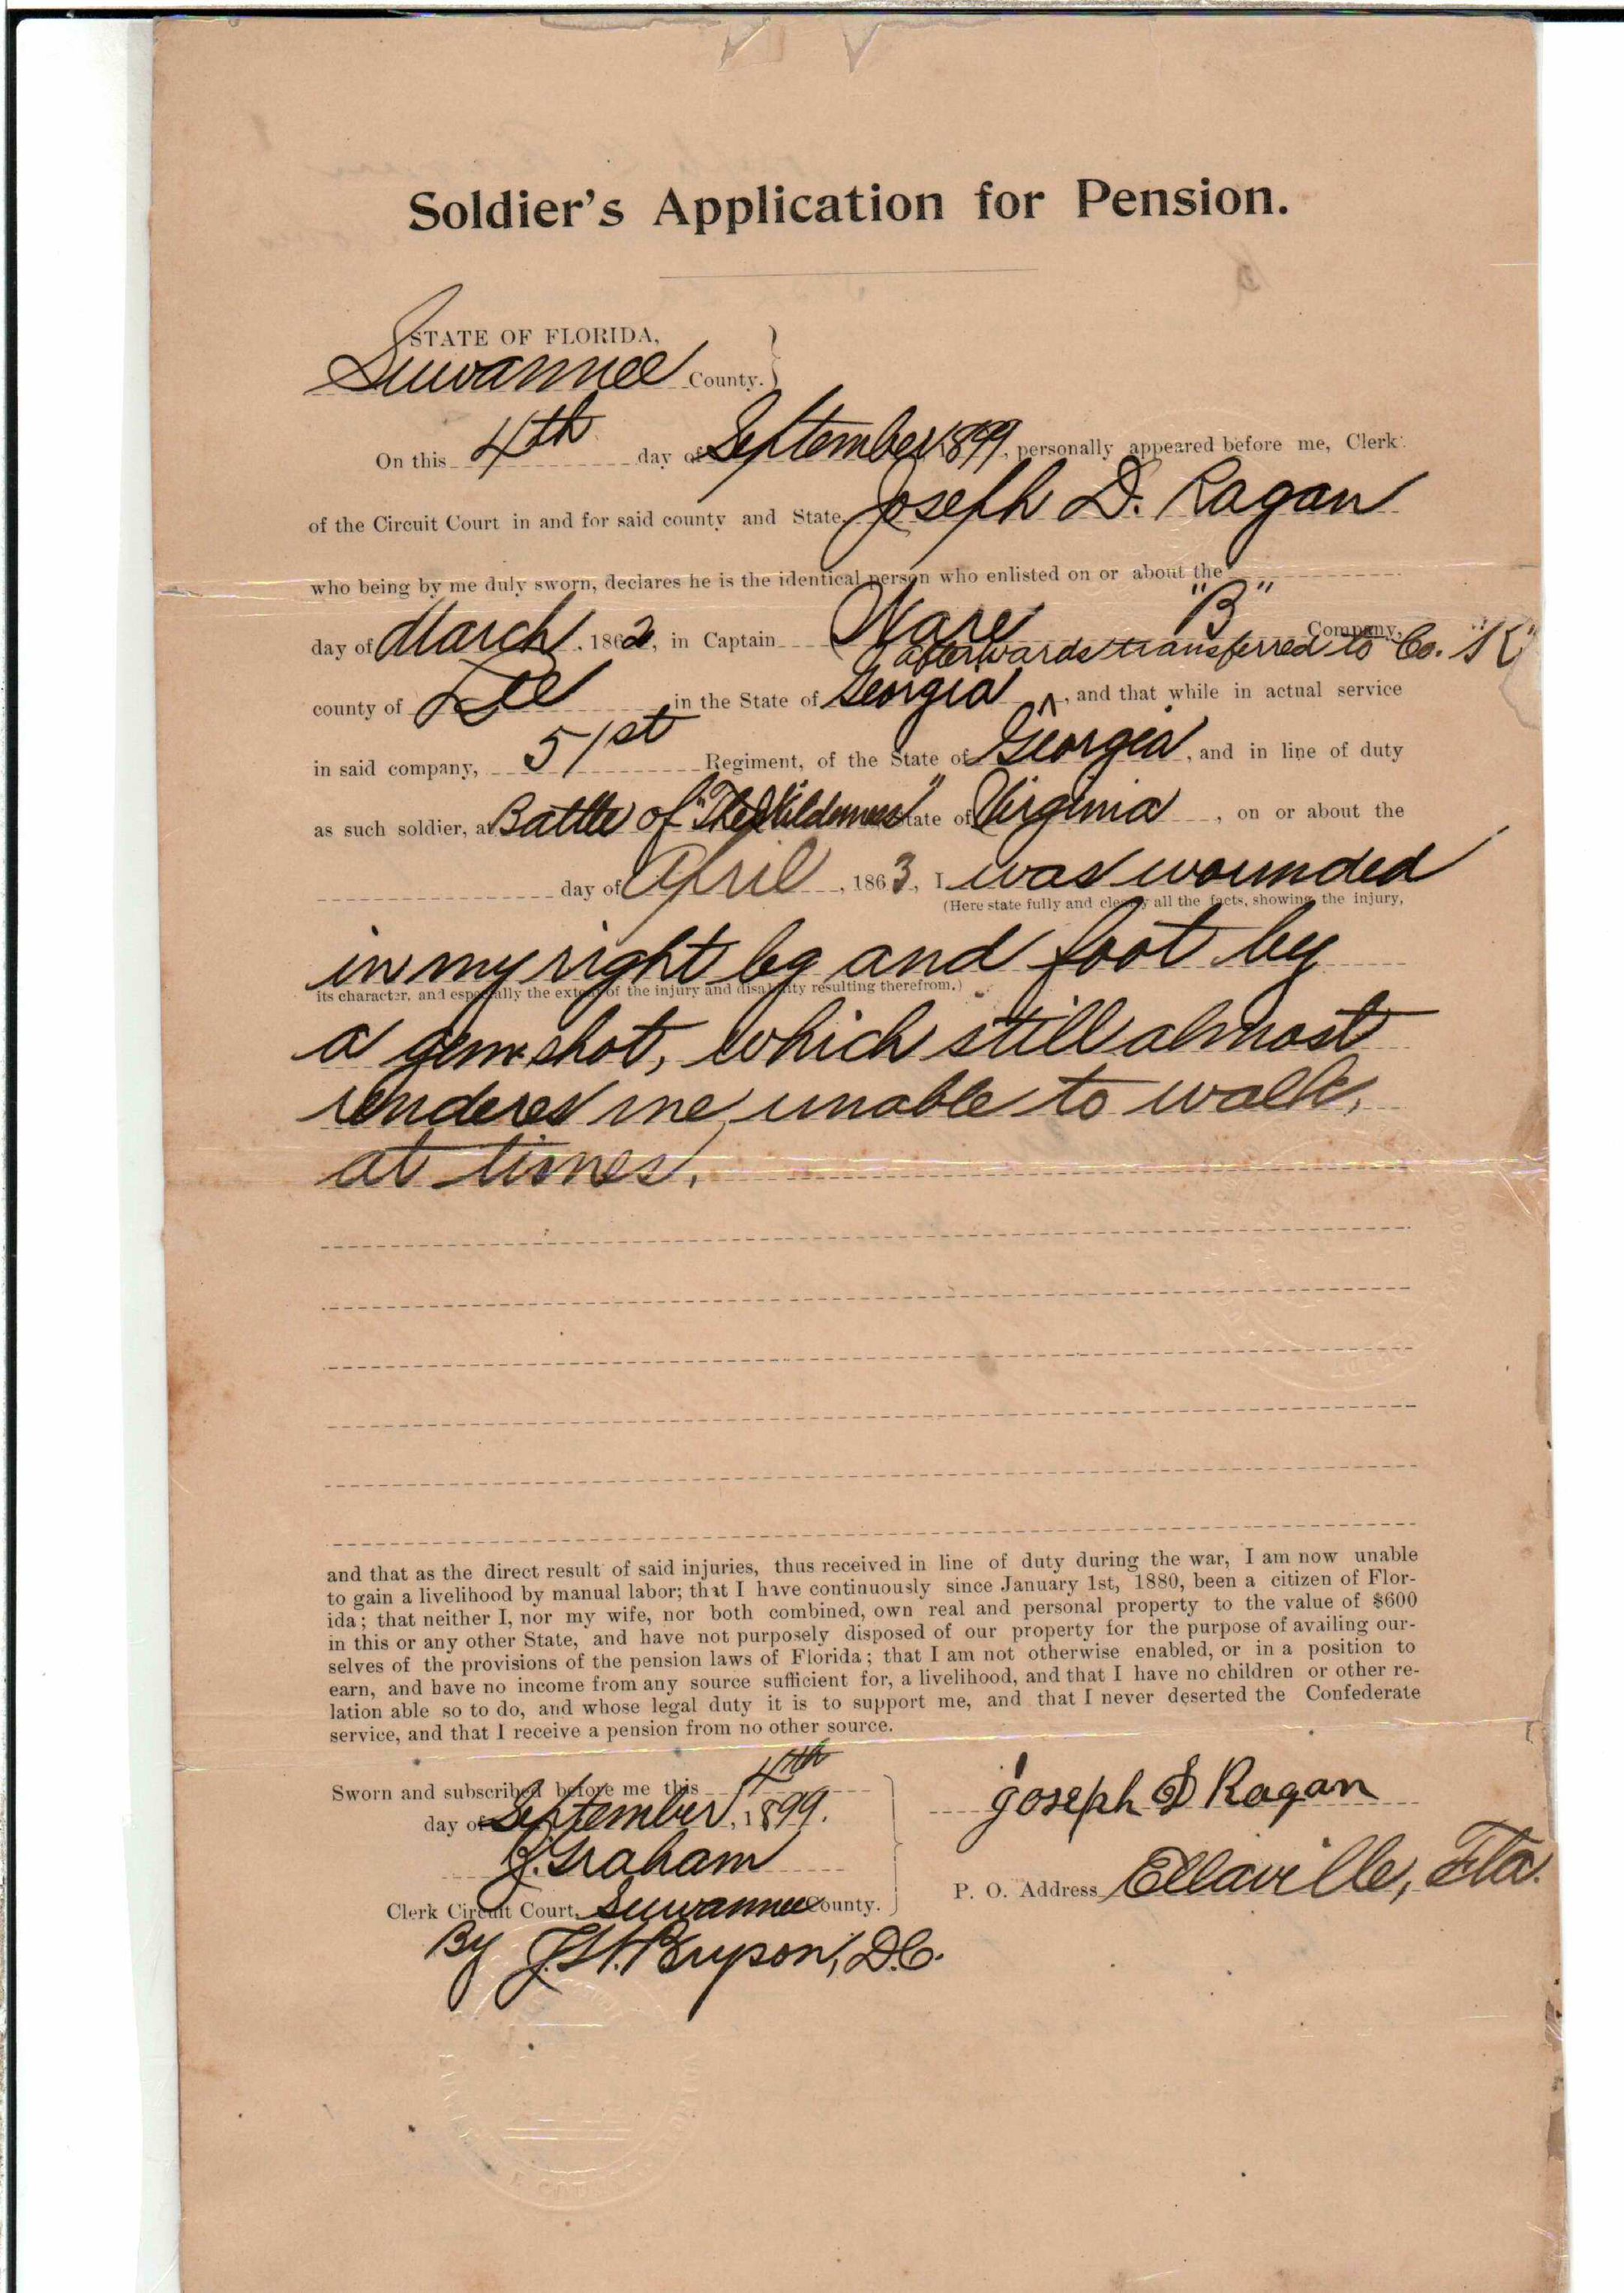 Soldier's Application for Pension.
STATE OF FLORIDA,
Suwannee County.
On this 4th day of September 1899, personally appeared before me, Clerk
of the Circuit Court in and for said county and State, Joseph D. Ragan
who being by me duly sworn, declares he is the identical person who enlisted on or about the
day of March, 1862, in Captain "B" Company,
afterwards transferred to Co. "K"
county of Lee in the State of Georgia ^, and that while in actual service
in said company, 51st Regiment, of the State of Georgia, and in line of duty
as such soldier, at Battle of "The Wilderness" State of Virginia, on or about the
day of April, 1863, I was wounded
(Here state fully and clearly all the facts, showing the injury,
in my right leg and foot by
its character, and especially the extent of the injury and disability resulting therefrom.)
a gunshot, which still almost
renderes me unable to walk,
at times.
and that as the direct result of said injuries, thus received in line of duty during the war, I am now unable
to gain a livelihood by manual labor; that I have continuously since January 1st, 1880, been a citizen of Flor-
ida; that neither I, nor my wife, nor both combined, own real and personal property to the value of $600
in this or any other State, and have not purposely disposed of our property for the purpose of availing our-
selves of the provisions of the pension laws of Florida; that I am not otherwise enabled, or in a position to
earn, and have no income from any source sufficient for, a livelihood, and that I have no children or other re-
lation able so to do, and whose legal duty it is to support me, and that I never deserted the Confederate
service, and that I receive a pension from no other source.
Sworn and subscribed before me this 4th
day of September, 1899.
Joseph D Ragan
Graham
Clerk Circuit Court, Suwannee County.
P. O. Address Ellaville, Fla.
By Bryson, D.C.